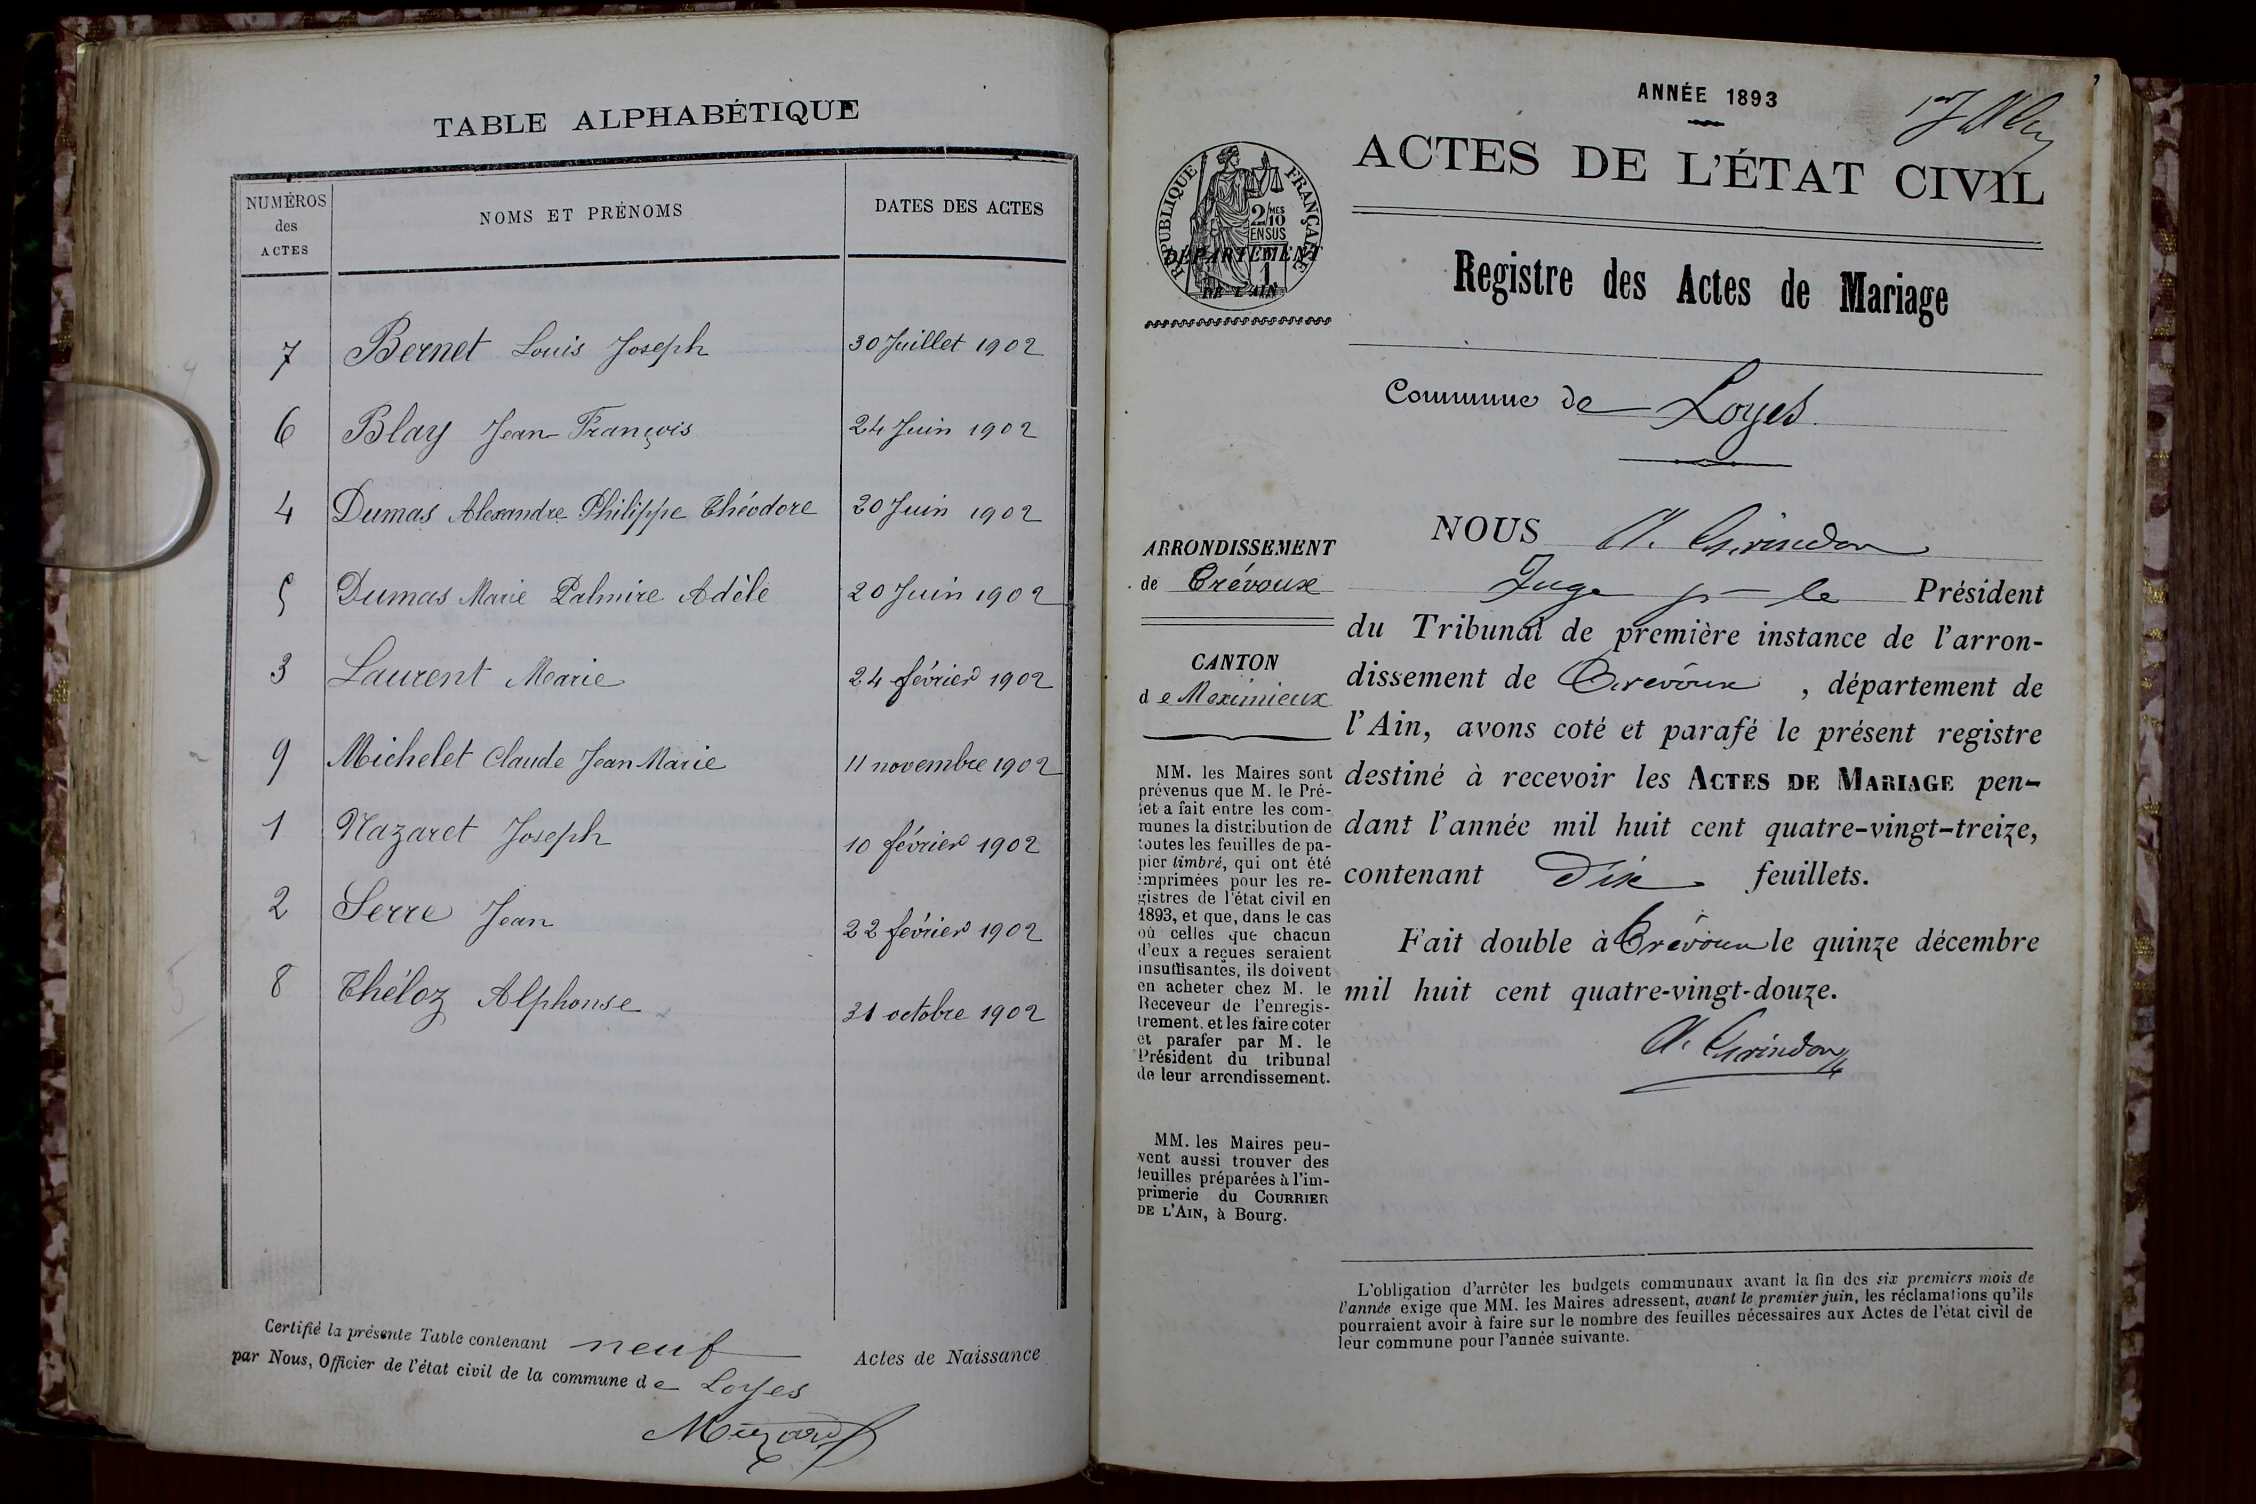 TABLE ALPHABÉTIQUE
NUMÉROS des ACTES
NOMS ET PRÉNOMS
DATES DES ACTES
7 Bernet Louis Joseph 30 Juillet 1902
6 Blay Jean François 24 Juin 1902
4 Dumas Alexandre Philippe Théodore 20 Juin 1902
5 Dumas Marie Palmire Adèle 20 Juin 1902
3 Laurent Marie 24 février 1902
9 Michelet Claude Jean Marie 11 novembre 1902
1 Nazaret Joseph 10 février 1902
2 Serre Jean 22 février 1902
8 Théloz Alphonse 31 octobre 1902
Certifié la présente Table contenant neuf Actes de Naissance
par Nous, Officier de l'état civil de la commune de Loyes
ANNÉE 1893
ACTES DE L'ÉTAT CIVIL
RÉPUBLIQUE FRANÇAISE
2/10 MES
EN SUS
DÉPARTEMENT
DE L'AIN
Registre des Actes de Mariage
Commune de Loyes
ARRONDISSEMENT
de Trévoux
CANTON
de Meximieux
MM. les Maires sont
prévenus que M. le Pré-
fet a fait entre les com-
munes la distribution de
toutes les feuilles de pa-
pier timbré, qui ont été
imprimées pour les re-
gistres de l'état civil en
1893, et que, dans le cas
où celles que chacun
d'eux a reçues seraient
insuffisantes, ils doivent
en acheter chez M. le
Receveur de l'enregis-
trement, et les faire coter
et parafer par M. le
Président du tribunal
de leur arrondissement.
MM. les Maires peu-
vent aussi trouver des
feuilles préparées à l'im-
primerie du COURRIER
DE L'AIN, à Bourg.
NOUS A. Girindon
Juge pr le Président
du Tribunal de première instance de l'arron-
dissement de Trévoux, département de
l'Ain, avons coté et parafé le présent registre
destiné à recevoir les ACTES DE MARIAGE pen-
dant l'année mil huit cent quatre-vingt-treize,
contenant Dix feuillets.
Fait double à Trévoux le quinze décembre
mil huit cent quatre-vingt-douze.
A. Girindon
L'obligation d'arrêter les budgets communaux avant la fin des six premiers mois de
l'année exige que MM. les Maires adressent, avant le premier juin, les réclamations qu'ils
pourraient avoir à faire sur le nombre des feuilles nécessaires aux Actes de l'état civil de
leur commune pour l'année suivante.